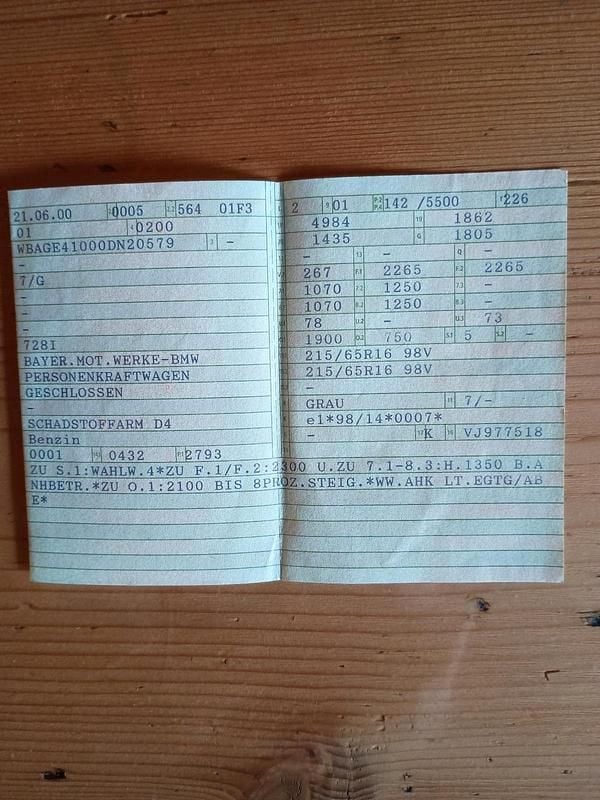 21.06.00 0005 564 01F3
01 0200
WBAGE41000DN20579 3 -
-
7/G
-
-
-
728I
BAYER.MOT.WERKE-BMW
PERSONENKRAFTWAGEN
GESCHLOSSEN
-
SCHADSTOFFARM D4
Benzin
0001 0432 2793
2 9 01 P.2 P.4 142 /5500 T 226
4984 19 1862
1435 G 1805
- 13 - Q -
267 F.1 2265 F.2 2265
1070 7.2 1250 7.3 -
1070 8.2 1250 8.3 -
78 U.2 - U.3 73
1900 O.2 750 S.1 5 S.2 -
215/65R16 98V
215/65R16 98V
-
GRAU 11 7/-
e1*98/14*0007*
- 17 K 16 VJ977518
ZU S.1:WAHLW.4*ZU F.1/F.2:2300 U.ZU 7.1-8.3:H.1350 B.A
NHBETR.*ZU O.1:2100 BIS 8PROZ.STEIG.*WW.AHK LT.EGTG/AB
E*